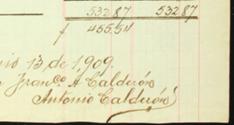 53287 53287
f 455.54
nio 13 de 1,909.
Franco A Calderón
Antonio Calderón